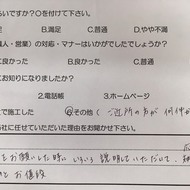 らいですか？○を付けて下さい。
B.満足 C.普通 D.やや不満
職人・営業）の対応・マナーはいかがでしたでしょうか？
B.良かった C.普通
お知りになりましたか？
2.電話帳 3.ホームページ
で施工した その他（ご近所の方が 何件か
当社に任せていただいた理由をお聞かせ下さい。
をお願いした時に いろいろ 説明していただいて、
と お値段